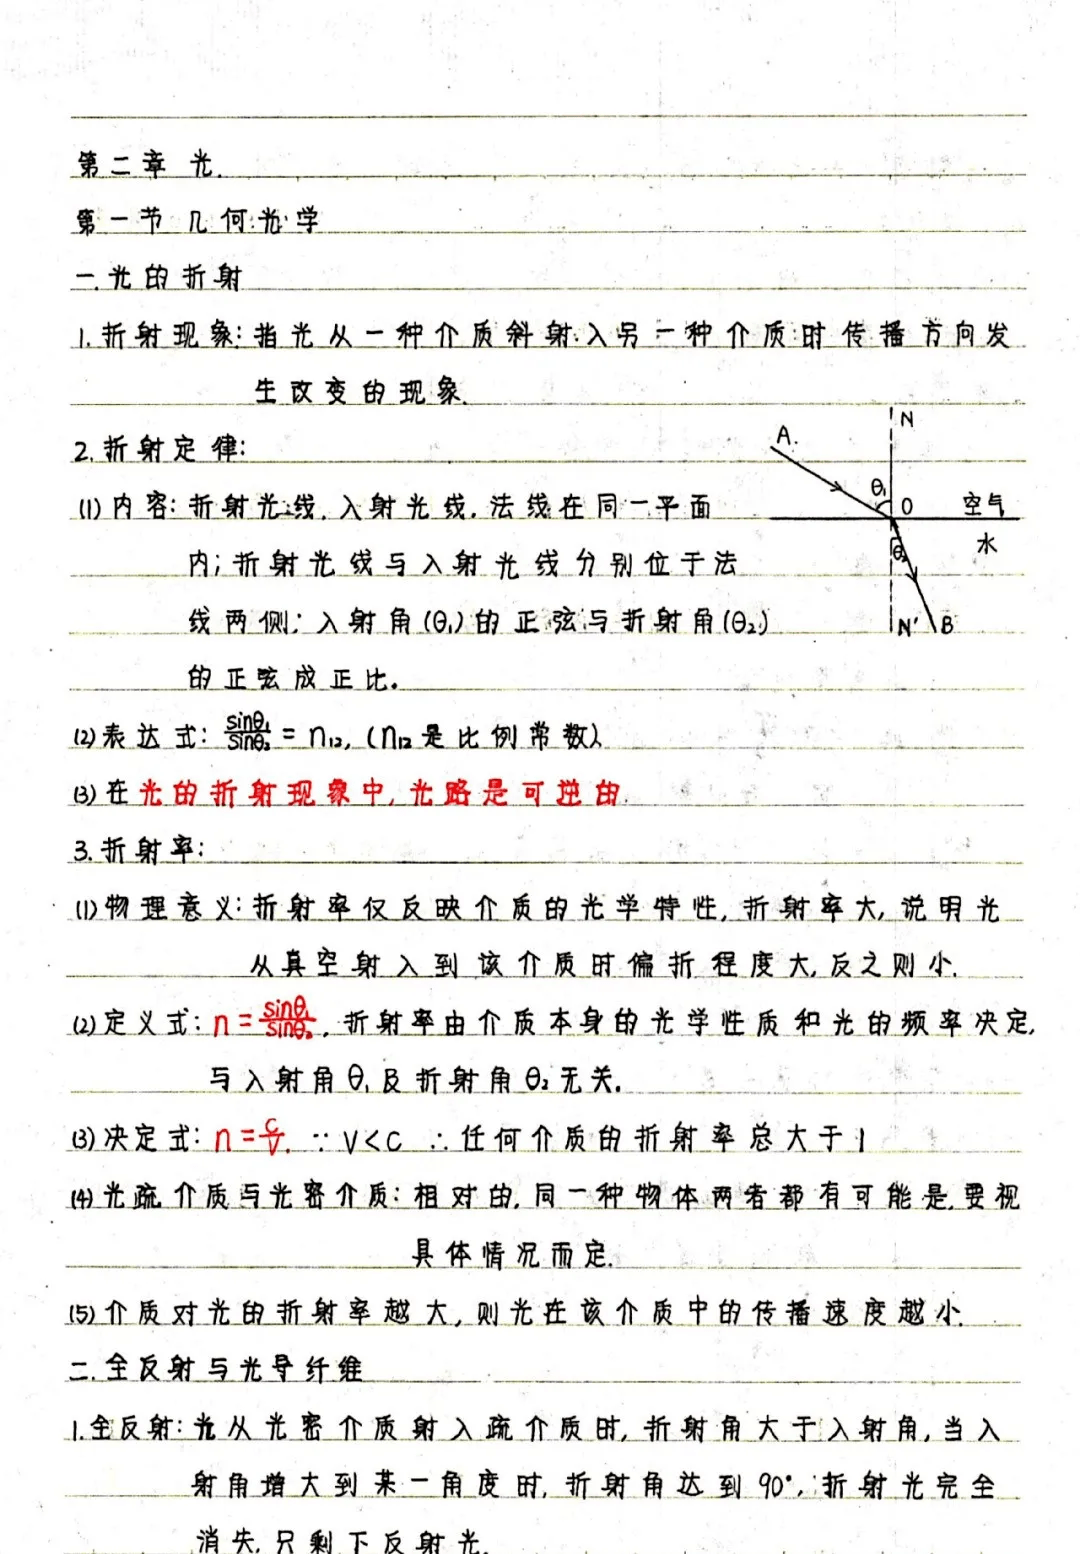 第二章 光.
第一节 几何光学
一.光的折射
1.折射现象:指光从一种介质斜射入另一种介质时传播方向发
生改变的现象.
2.折射定律:
(1)内容:折射光线.入射光线.法线在同一平面
内;折射光线与入射光线分别位于法
线两侧;入射角(θ₁)的正弦与折射角(θ₂)
的正弦成正比.
N
A.
θ₁
O
空气
水
θ₂
N'
B
(2)表达式: sinθ₁/sinθ₂ = n₁₂, (n₁₂是比例常数)
(3)在光的折射现象中,光路是可逆的.
3.折射率:
(1)物理意义:折射率仅反映介质的光学特性,折射率大,说明光
从真空射入到该介质时偏折程度大,反之则小.
(2)定义式: n = sinθ₁/sinθ₂, 折射率由介质本身的光学性质和光的频率决定,
与入射角θ₁及折射角θ₂无关.
(3)决定式: n = c/v. ∵ V<C ∴任何介质的折射率总大于1
(4)光疏介质与光密介质:相对的,同一种物体两者都有可能是,要视
具体情况而定.
(5)介质对光的折射率越大,则光在该介质中的传播速度越小.
二.全反射与光导纤维
1.全反射:光从光密介质射入疏介质时,折射角大于入射角,当入
射角增大到某一角度时,折射角达到90°,折射光完全
消失,只剩下反射光.